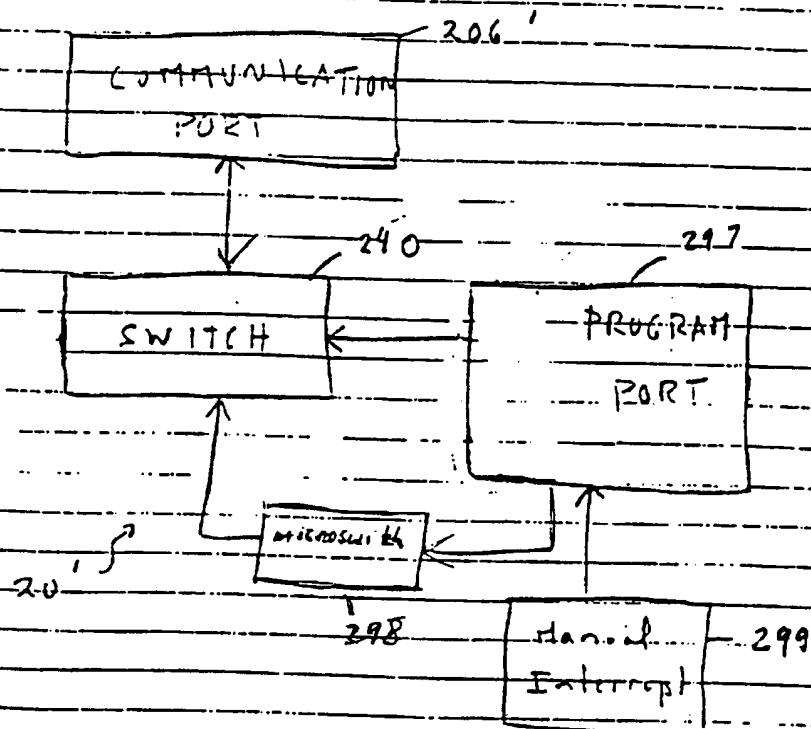 206'
COMMUNICATION
PORT
240
297
SWITCH
PROGRAM
PORT
microswitch
20'
298
Manual
Interrupt
299